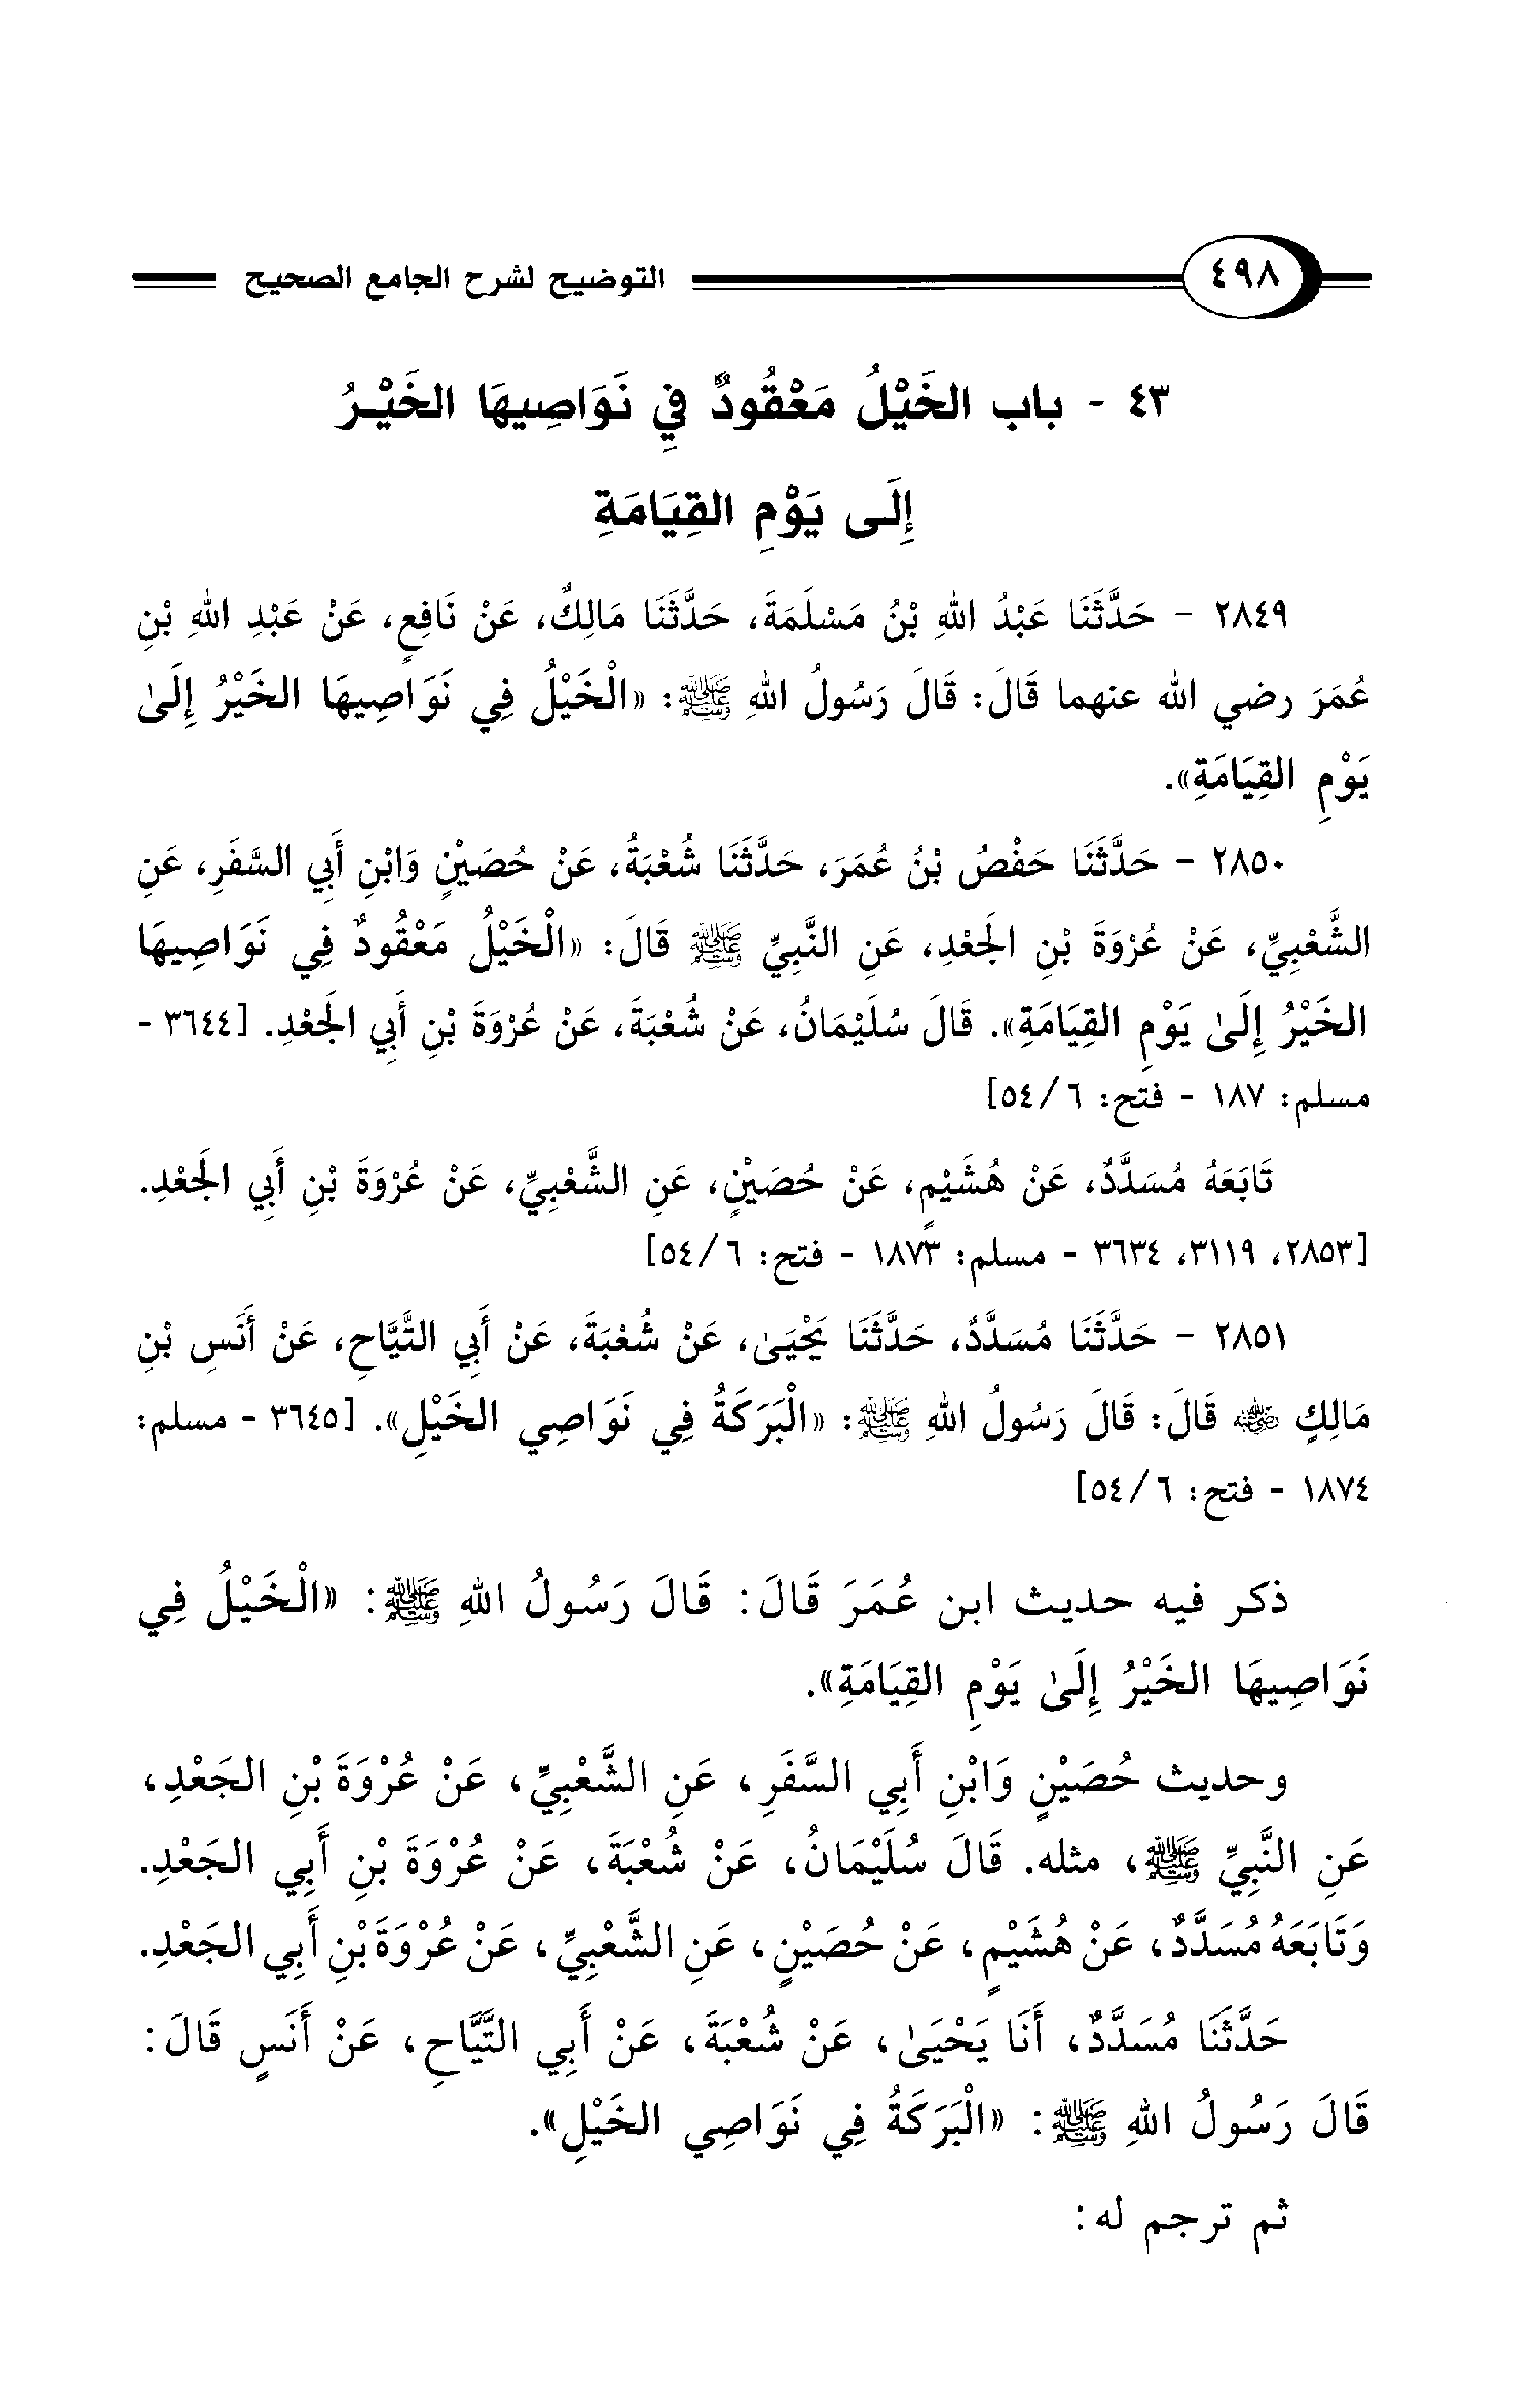 ٤٩٨ التوضيح لشرح الجامع الصحيح
٤٣ - باب الخَيْلُ مَعْقُودٌ فِي نَوَاصِيهَا الخَيْرُ
إِلَى يَوْمِ القِيَامَةِ
٢٨٤٩ - حَدَّثَنَا عَبْدُ اللهِ بْنُ مَسْلَمَةَ، حَدَّثَنَا مَالِكٌ، عَنْ نَافِعٍ، عَنْ عَبْدِ اللهِ بْنِ
عُمَرَ رضي الله عنهما قَالَ: قَالَ رَسُولُ اللهِ ﷺ: «الْخَيْلُ فِي نَوَاصِيهَا الخَيْرُ إِلَىٰ
يَوْمِ القِيَامَةِ».
٢٨٥٠ - حَدَّثَنَا حَفْصُ بْنُ عُمَرَ، حَدَّثَنَا شُعْبَةُ، عَنْ حُصَيْنٍ وَابْنِ أَبِي السَّفَرِ، عَنِ
الشَّعْبِيِّ، عَنْ عُرْوَةَ بْنِ الجَعْدِ، عَنِ النَّبِيِّ ﷺ قَالَ: «الْخَيْلُ مَعْقُودٌ فِي نَوَاصِيهَا
الخَيْرُ إِلَىٰ يَوْمِ القِيَامَةِ». قَالَ سُلَيْمَانُ، عَنْ شُعْبَةَ، عَنْ عُرْوَةَ بْنِ أَبِي الجَعْدِ. [٣٦٤٤ -
مسلم: ١٨٧ - فتح: ٦/ ٥٤]
تَابَعَهُ مُسَدَّدٌ، عَنْ هُشَيْمٍ، عَنْ حُصَيْنٍ، عَنِ الشَّعْبِيِّ، عَنْ عُرْوَةَ بْنِ أَبِي الجَعْدِ.
[٢٨٥٣، ٣١١٩، ٣٦٣٤ - مسلم: ١٨٧٣ - فتح: ٦/ ٥٤]
٢٨٥١ - حَدَّثَنَا مُسَدَّدٌ، حَدَّثَنَا يَحْيَىٰ، عَنْ شُعْبَةَ، عَنْ أَبِي التَّيَّاحِ، عَنْ أَنَسِ بْنِ
مَالِكٍ رضي الله عنه قَالَ: قَالَ رَسُولُ اللهِ ﷺ: «الْبَرَكَةُ فِي نَوَاصِي الخَيْلِ». [٣٦٤٥ - مسلم:
١٨٧٤ - فتح: ٦/ ٥٤]
ذكر فيه حديث ابن عُمَرَ قَالَ: قَالَ رَسُولُ اللهِ ﷺ: «الْخَيْلُ فِي
نَوَاصِيهَا الخَيْرُ إِلَىٰ يَوْمِ القِيَامَةِ».
وحديث حُصَيْنٍ وَابْنِ أَبِي السَّفَرِ، عَنِ الشَّعْبِيِّ، عَنْ عُرْوَةَ بْنِ الجَعْدِ،
عَنِ النَّبِيِّ ﷺ، مثله. قَالَ سُلَيْمَانُ، عَنْ شُعْبَةَ، عَنْ عُرْوَةَ بْنِ أَبِي الجَعْدِ.
وَتَابَعَهُ مُسَدَّدٌ، عَنْ هُشَيْمٍ، عَنْ حُصَيْنٍ، عَنِ الشَّعْبِيِّ، عَنْ عُرْوَةَ بْنِ أَبِي الجَعْدِ.
حَدَّثَنَا مُسَدَّدٌ، أَنَا يَحْيَىٰ، عَنْ شُعْبَةَ، عَنْ أَبِي التَّيَّاحِ، عَنْ أَنَسٍ قَالَ:
قَالَ رَسُولُ اللهِ ﷺ: «الْبَرَكَةُ فِي نَوَاصِي الخَيْلِ».
ثم ترجم له: